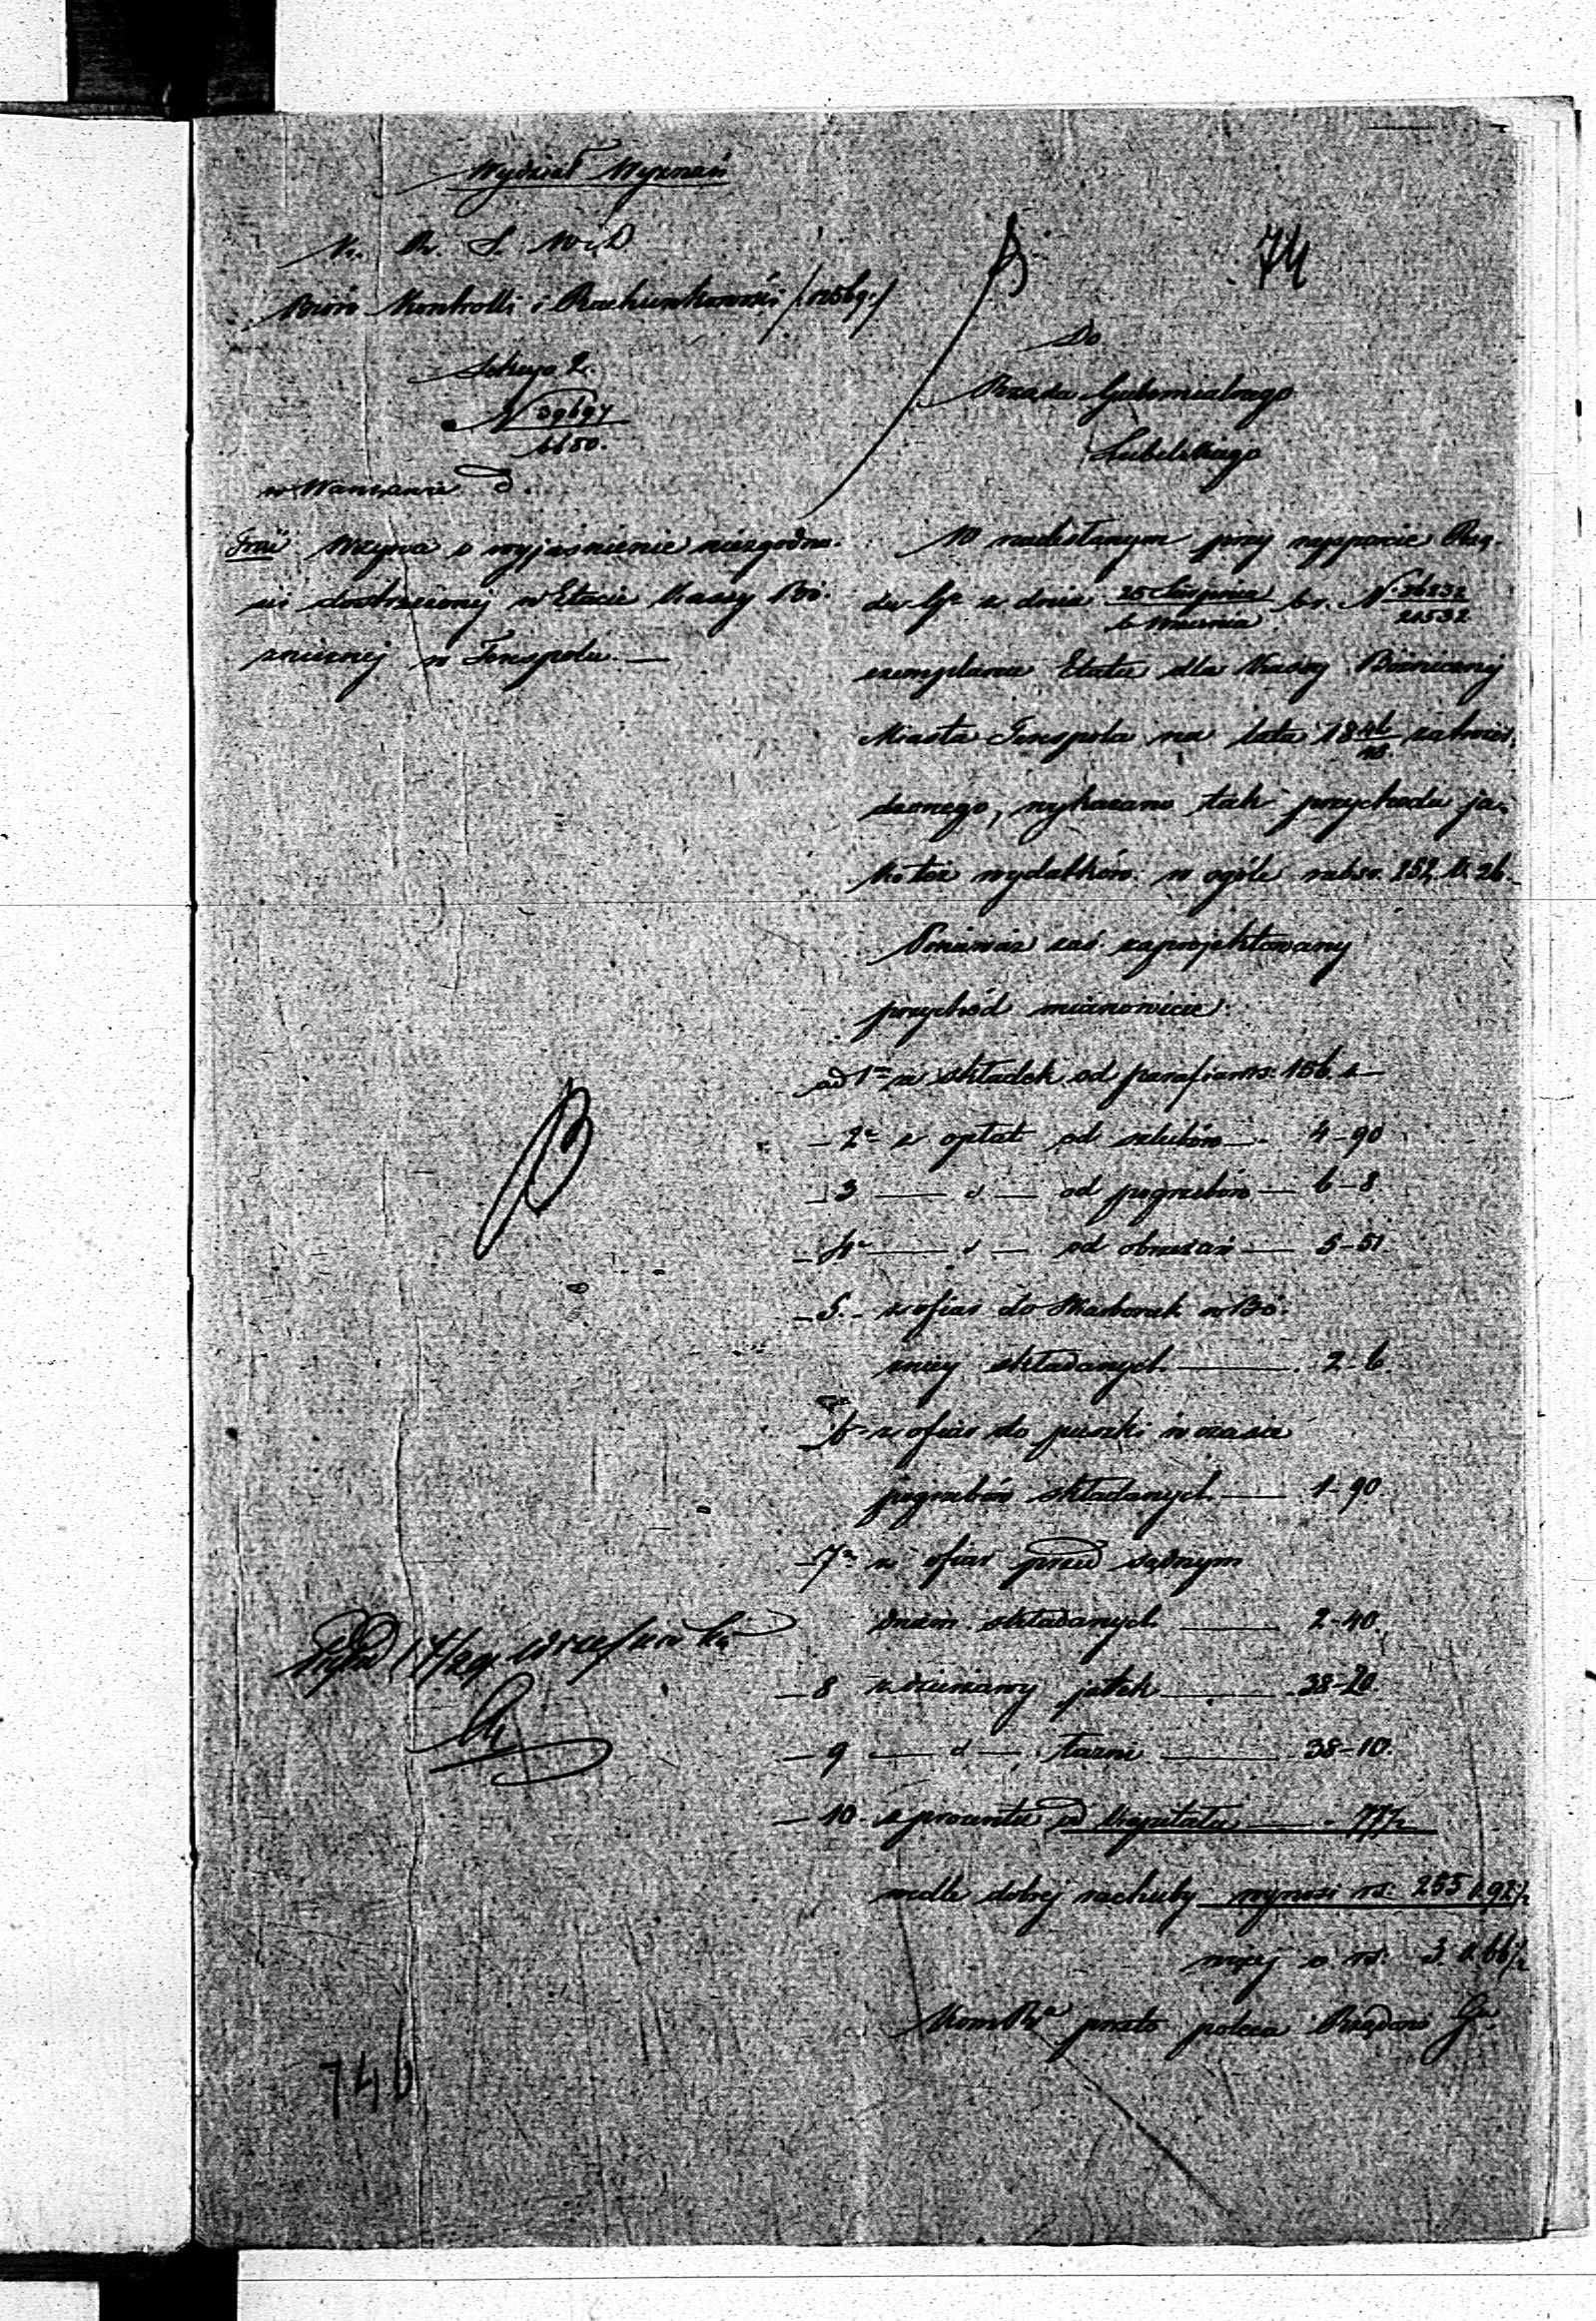 74
Wydział Wyznań
K. R. S. W. i D.
Biuro Kontrolli i Rachunkowości
Sekcya 2.
N 39697
6650.
w Warszawie d.
Treść Wzywa o wyjaśnienie niezgodno-
ści dostrzeżonej w Etacie Kassy Bó-
żniczej w Terespolu. —
Do
Rządu Gubernialnego
Lubelskiego
W nadesłanym przy rapporcie Rzą-
du Go z dnia 25 Sierpnia / 6 Września br. N. 36232 / 21532
exemplarzu Etatu dla Kassy Bóżniczej
Miasta Terespola na lata 18 46/48 zatwier-
dzonego, wykazano tak przychodu ja-
ko też wydatków w ogóle rubsr. 252 k. 26.
Ponieważ zaś zaprojektowany
przychód mianowicie:
ad 1o ze składek od parafian rs. 156. k —
— 2o z opłat od szlubów — 4-90
— 3 — d — od pogrzebów — 6-8
— 4o — d — od obrzezań — 5-51.
— 5. - z ofiar do Skarbonek w Bó-
żnicy składanych — 2-6.
— 6o z ofiar do puszki w czasie
pogrzebów składanych — 1-90
— 7o z ofiar przed sądnym
dniem składanych — 2-40.
— 8 z dzierżawy jatek — 38-20.
— 9 — d — łaźni — 38-10.
— 10. z procentu od kapitału — 77½
wedle dobrej rachuby wynosi rs. 255 k. 92½
więcej o rs. 3 k. 66½
Kom Rwa przeto poleca Rządowi Go
17/29 Września
740